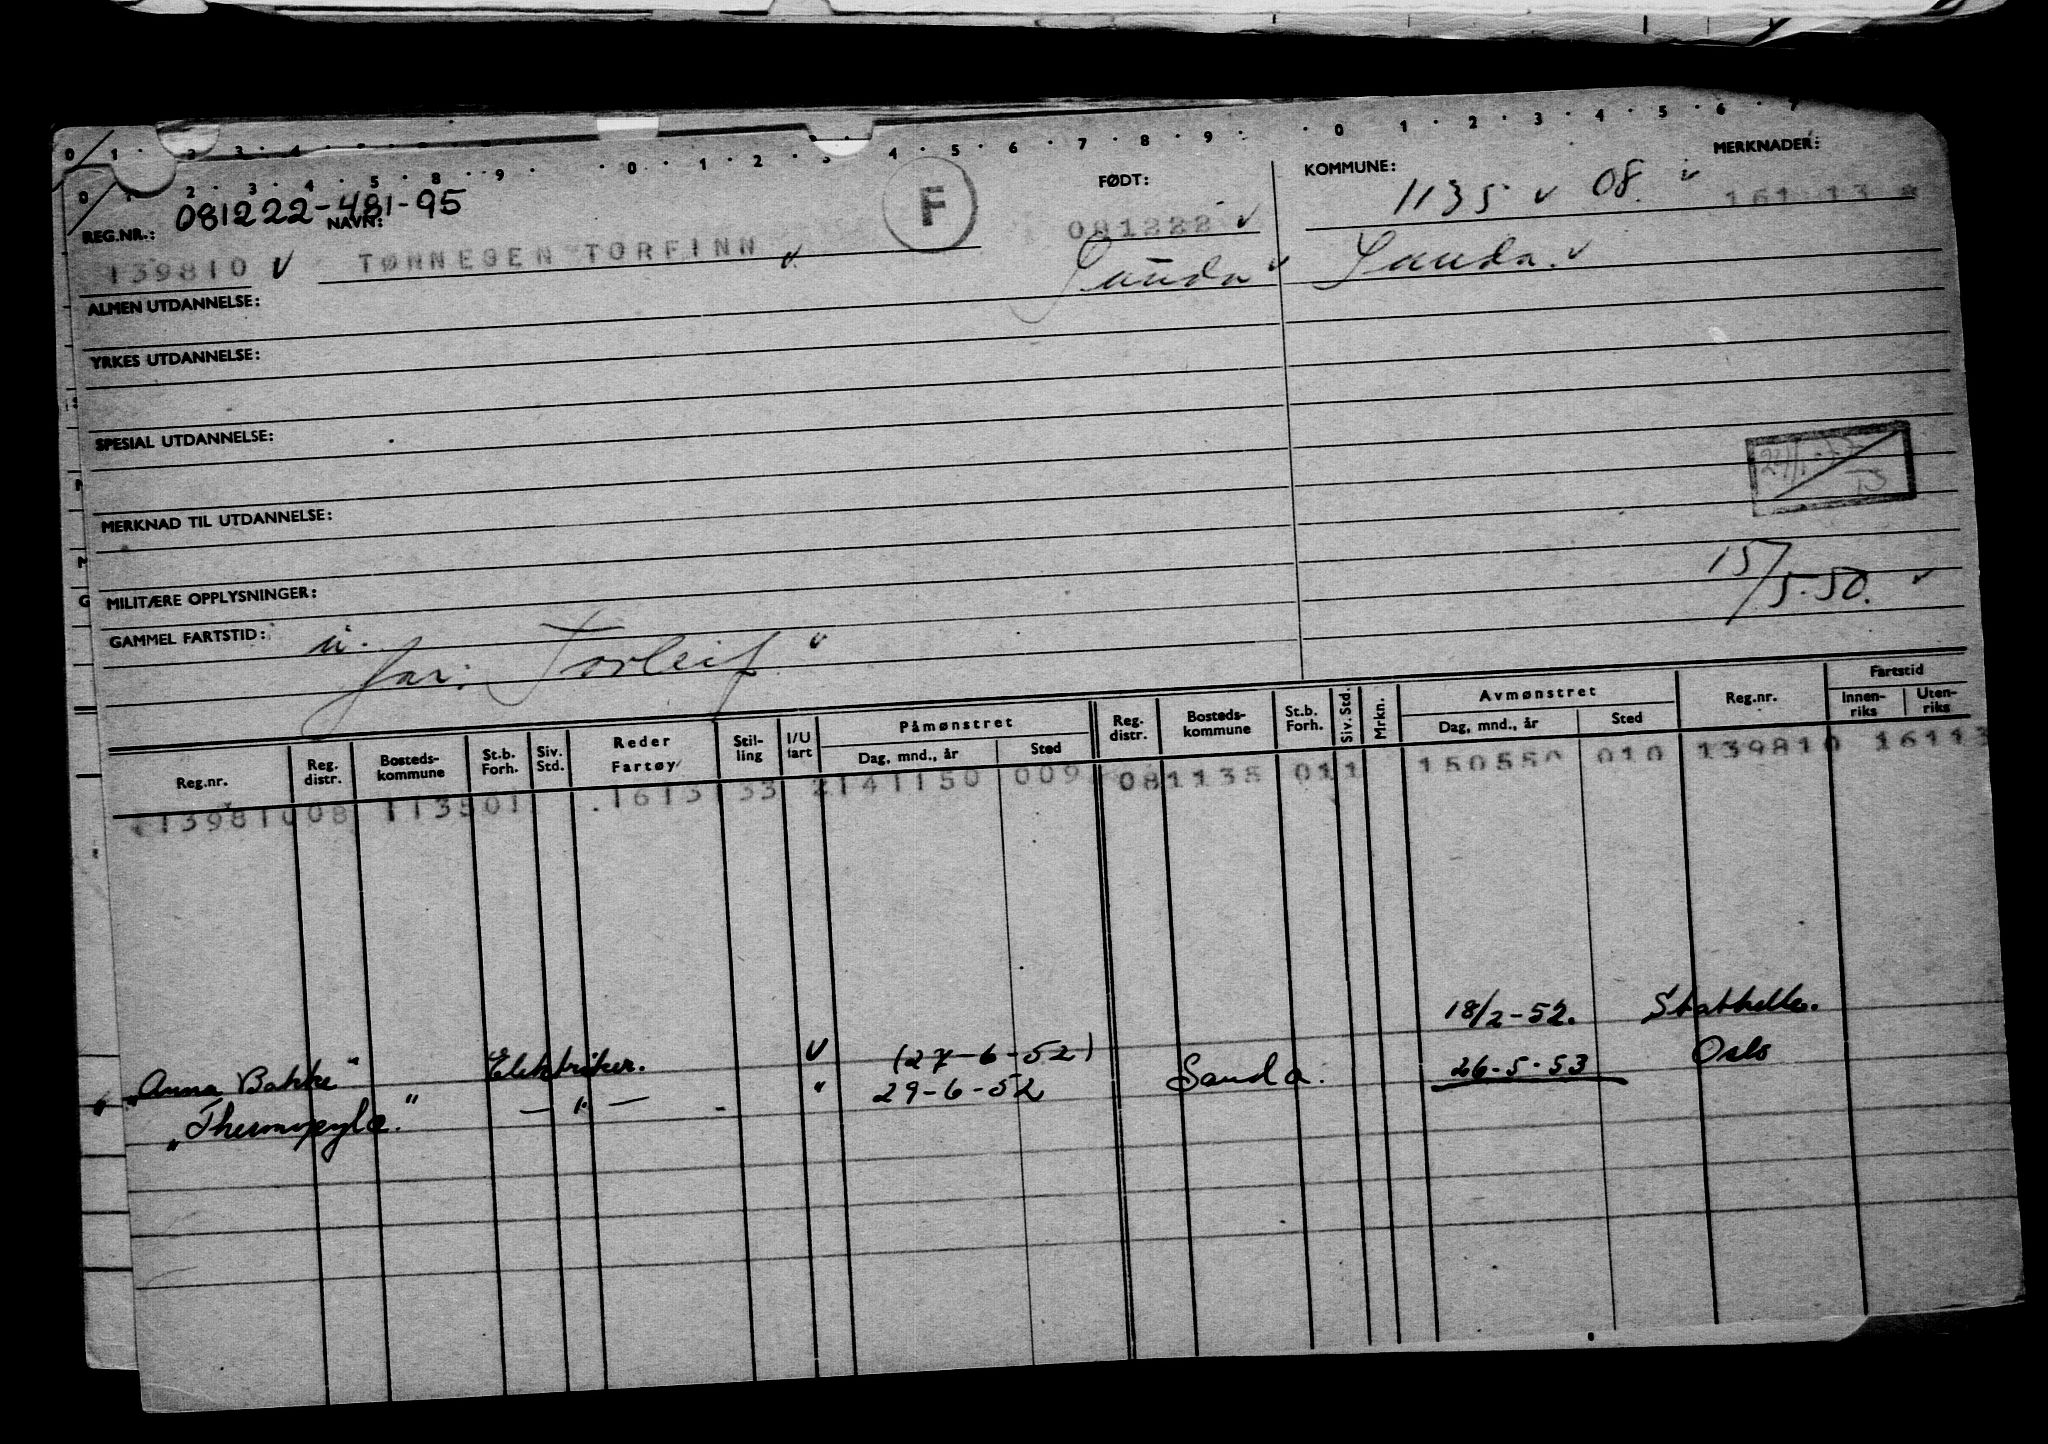 0 1 · 2 · 3 · 4 · 5 · 8 · 9 · · 0 · 1 · 2 · 3 · 4 · 5 · 6 · 7 · 8 · 9 · · 0 1 · 2 · 3 · 4 · 5 · 6 · 7
REG.NR.: 081222-481-95 NAVN: F FØDT: KOMMUNE: 1135 v 08. v MERKNADER:
139810 v TØNNESEN TORFINN v 081222 v 161 13
Sauda v Sauda. v
ALMEN UTDANNELSE:
YRKES UTDANNELSE:
SPESIAL UTDANNELSE:
MERKNAD TIL UTDANNELSE:
MILITÆRE OPPLYSNINGER:
15/5-50. v
GAMMEL FARTSTID: u.
far: Torleif v
Reg.nr. Reg. distr. Bosteds-kommune St.b. Forh. Siv. Std. Reder Fartøy Stil-ling I/U fart Påmønstret Dag, mnd., år Sted Reg. distr. Bosteds-kommune St.b. Forh. Siv. Std. Mrkn. Avmønstret Dag, mnd., år Sted Reg.nr. Fartstid Innen-riks Uten-riks
139810 08 1135 01 1613 33 2 141150 009 08 1135 01 1 150550 010 139810 16113
18/2-52. Stathelle.
„Anna Bakke" Elektriker. U (27-6-52) Oslo
„Thermopylæ." — " — - " 29-6-52 Sauda. 26-5-53